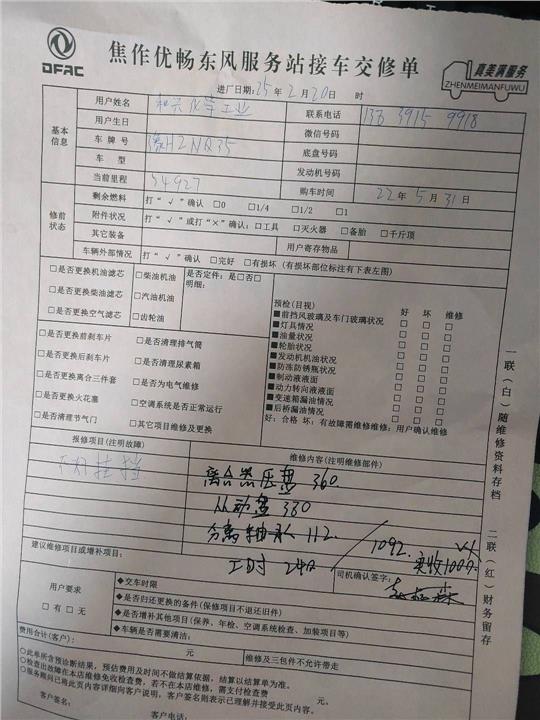 DFAC
焦作优畅东风服务站接车交修单
真美满服务
ZHENMEIMANFUWU
进厂日期: 25 年 2 月 20 日 时
基本信息
用户姓名 和兴化学工业 联系电话 133 3915 9918
用户生日 微信号码
车牌号 豫H2NQ35 底盘号码
车型 发动机号码
当前里程 54927 购车时间 22 年 5 月 31 日
修前状态
剩余燃料 打“√”确认 □0 □1/4 □1/2 □1
附件状况 打“√”或打“×”确认: □工具 □灭火器 □备胎 □千斤顶
其它装备 用户寄存物品
车辆外部情况 打“√”确认 □完好 □有损坏 (有损坏部位标注有下表左图)
□是否更换机油滤芯 □柴油机油 是否定件: 是□否□
□是否更换柴油滤芯 □汽油机油 明细:
□是否更换空气滤芯 □齿轮油
□是否更换前刹车片 □是否清理排气筒
□是否更换后刹车片 □是否清理尿素箱
□是否更换离合三件套 □是否为电气维修
□是否更换火花塞 □空调系统是否正常运行
□是否清理节气门 □其它项目维修及更换
预检(目视) 好 坏 维修
■前挡风玻璃及车门玻璃状况 □ □ □
■灯具情况 □ □ □
■油量状况 □ □ □
■轮胎状况 □ □ □
■发动机机油状况 □ □ □
■防冻防锈瓶状况 □ □ □
■制动液液面 □ □ □
■动力转向液液面 □ □ □
■变速箱漏油情况 □ □ □
■后桥漏油情况 □ □ □
好: 合格 坏: 有故障需维修维修: 用户确认维修
报修项目(注明故障) 维修内容(注明维修部件)
不好挂挡
离合器压盘 360
从动盘 330
分离轴承 112
1092.
实收1000
工时 290
建议维修项目或增补项目:
司机确认签字:
用户要求
□有 □无
◆交车时限
◆是否归还更换的备件(保修项目不退还旧件)
◆是否增补其他项目(保养、年检、空调系统检查、加装项目等)
◆车辆是否需要清洁:
费用合计(客户): 元 维修及三包件不允许带走
○此单所含预诊断结果, 预估费用及时间不做结算依据, 结算以结算单为准。
○检查出故障在本店维修免收检查费, 若不在本店维修, 需支付检查费 元。
○服务顾问已将此页内容详细向客户说明, 客户签名则表示已理解并接受此页内容。
客户签名: 客户电话:
一联(白)随维修资料存档
二联(红)财务留存